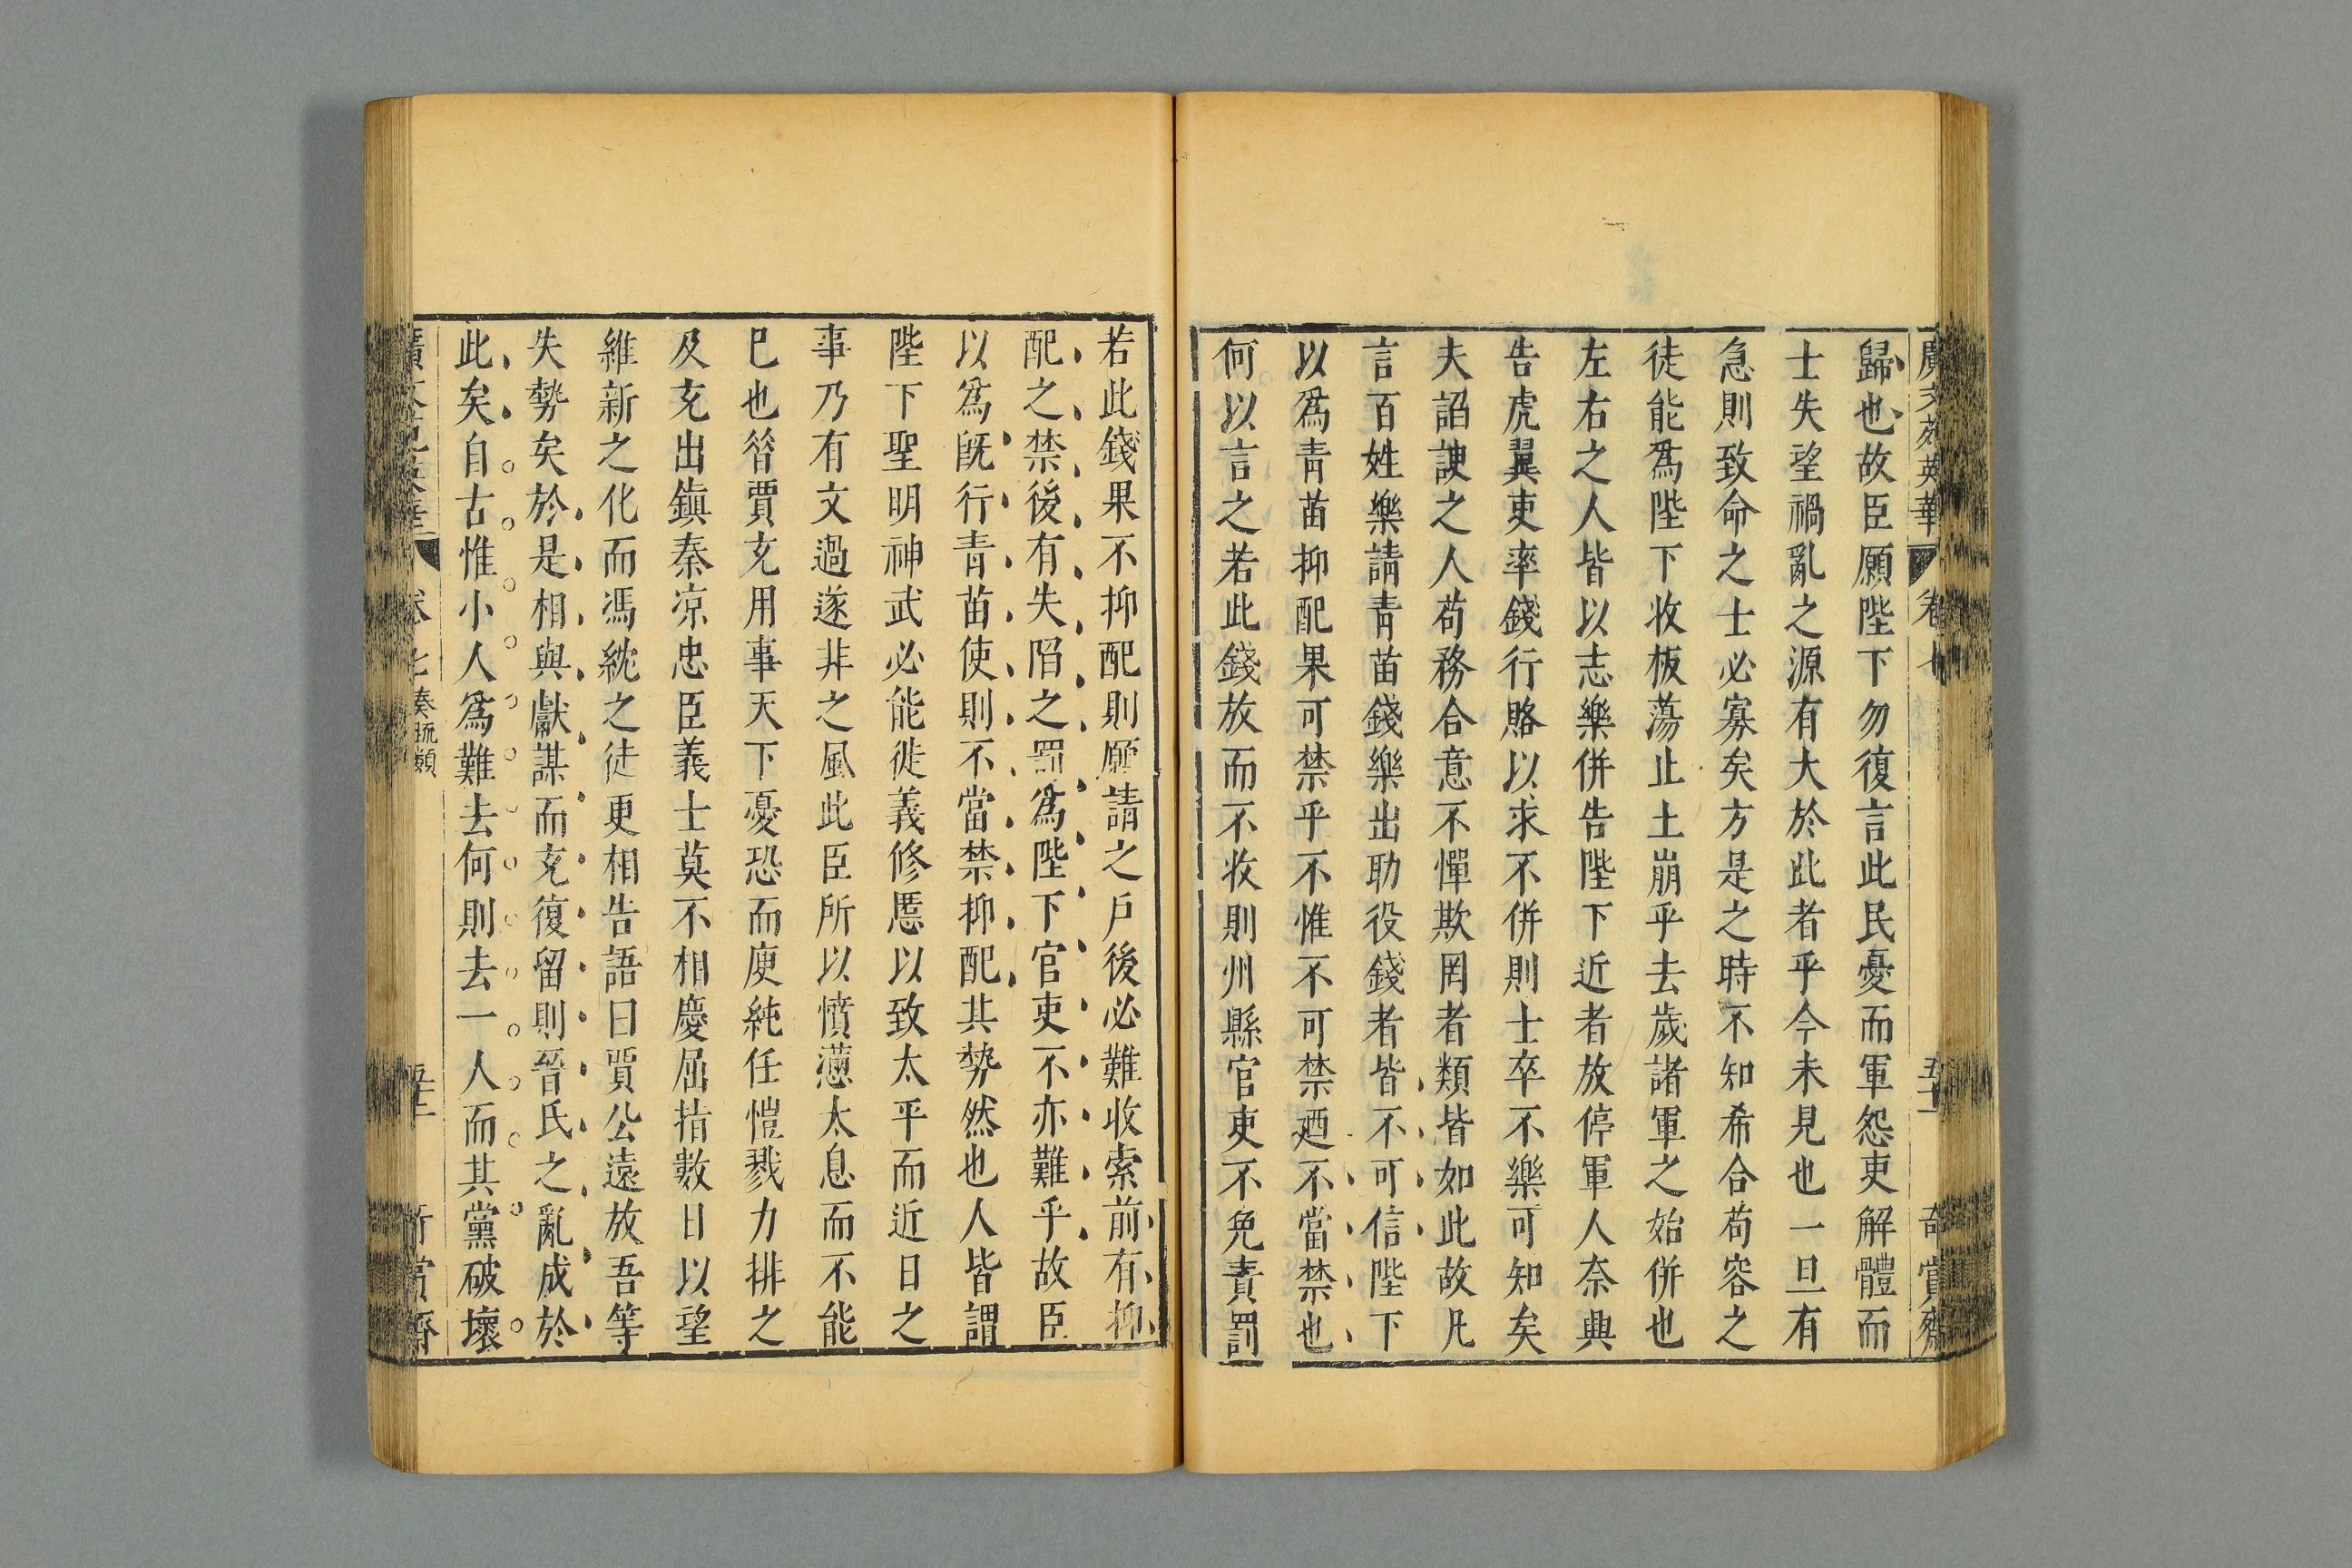 廣文苑英華 卷七 奇賞齋
歸也故臣願陛下勿復言此民憂而軍怨吏解體而
士失望禍亂之源有大於此者乎今未見也一旦有
急則致命之士必寡矣方是之時不知希合苟容之
徒能爲陛下收板蕩止土崩乎去歲諸軍之始併也
左右之人皆以志樂併告陛下近者放停軍人奈典
告虎翼吏率錢行賂以求不併則士卒不樂可知矣
夫謟諛之人苟務合意不憚欺罔者類皆如此故凡
言百姓樂請靑苗錢樂出助役錢者皆不可信陛下
以爲靑苗抑配果可禁乎不惟不可禁廼不當禁也
何以言之若此錢放而不收則州縣官吏不免責罰
若此錢果不抑配則願請之戸後必難收索前有抑
配之禁後有失陷之罰爲陛下官吏不亦難乎故臣
以爲旣行靑苗使則不當禁抑配其勢然也人皆謂
陛下聖明神武必能徙義修慝以致太平而近日之
事乃有文過遂非之風此臣所以憤懣太息而不能
已也昝賈充用事天下憂恐而庾純任愷戮力排之
及充出鎭秦凉忠臣義士莫不相慶屈指數日以望
維新之化而馮紞之徒更相告語曰賈公遠放吾等
失勢矣於是相與獻謀而充復留則晉氏之亂成於
此矣自古惟小人爲難去何則去一人而其黨破壞
卷七 奏疏類